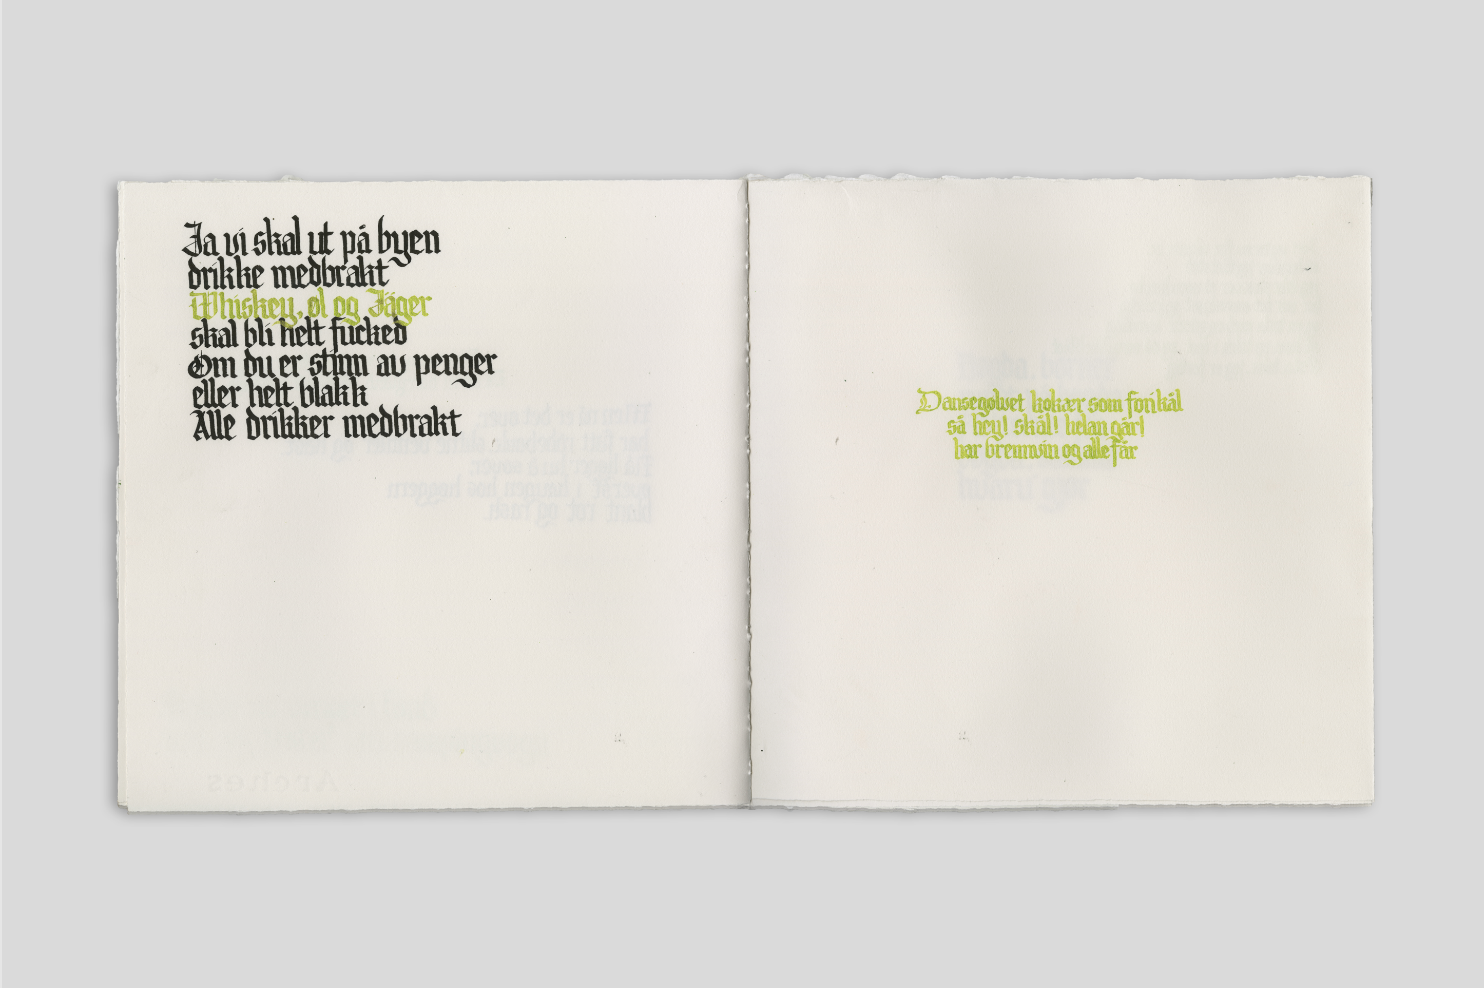 Ja vi skal ut på byen
drikke medbrakt
Whiskey, øl og Jäger
skal bli helt fucked
Om du er stinn av penger
eller helt blakk
Alle drikker medbrakt
Dansegolvet kokær som forikål
så hey! skål! helan går!
har brennvin og alle får
Arches